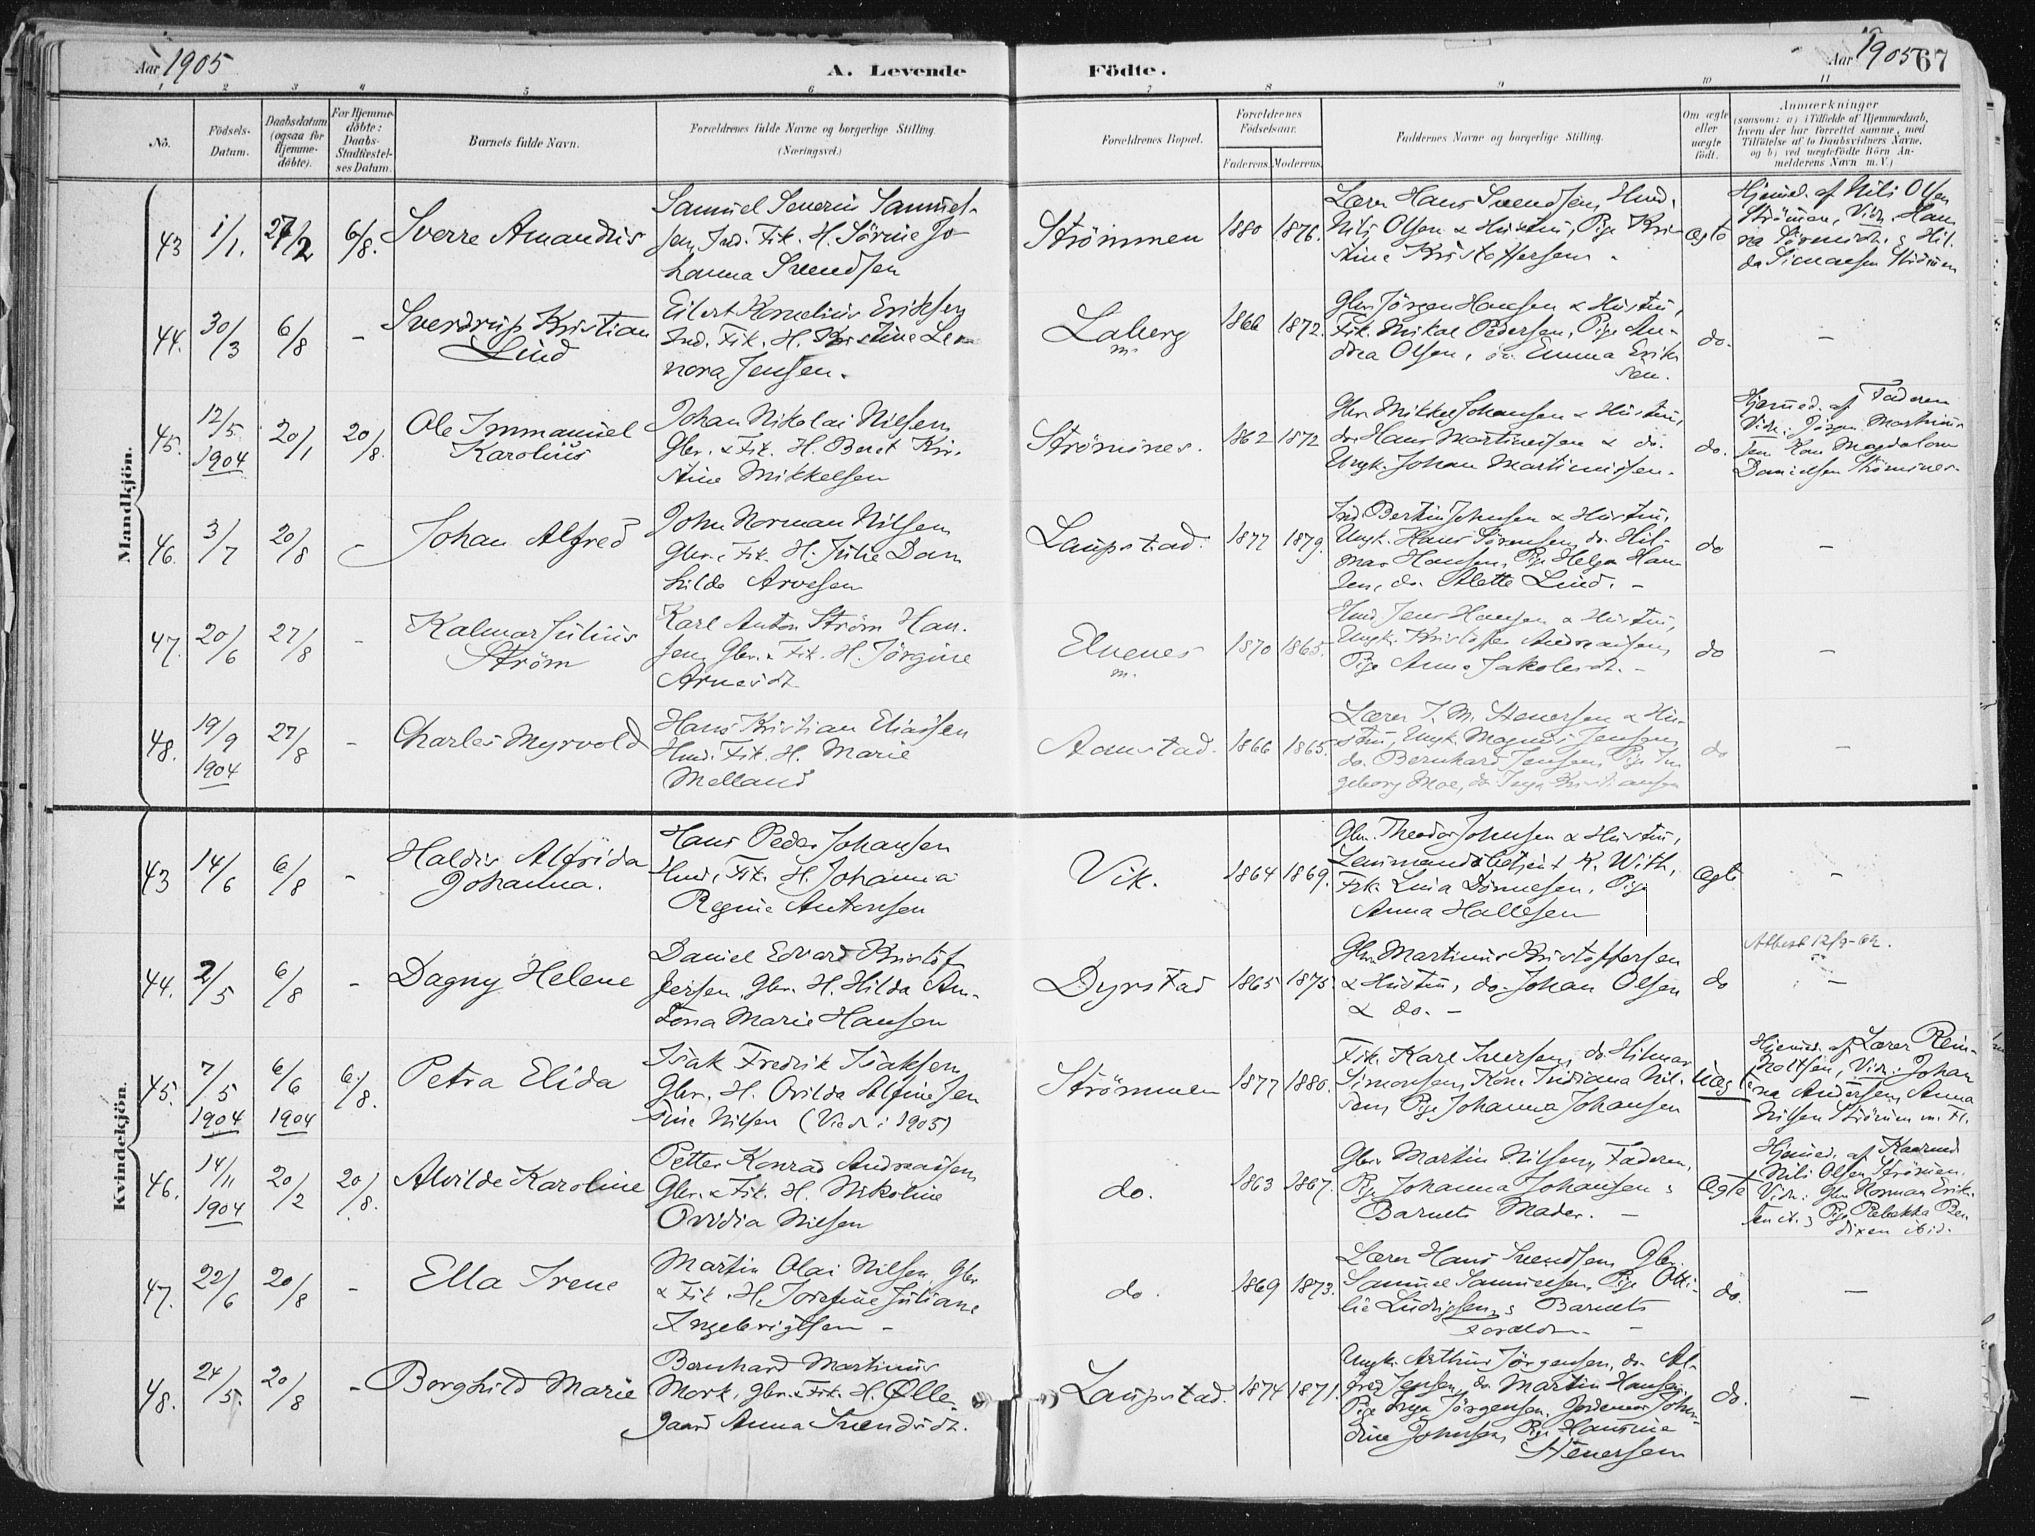 Aar 1905
A. Levende
Födte.
Aar 1905
67
1 2 3 4 5 6 7 8 9 10 11
No.
Födsels-
Datum.
Daabsdatum
(ogsaa for
Hjemme-
döbte).
For Hjemme-
döbte:
Daabs-
Stadfæstel-
ses Datum.
Barnets fulde Navn.
Forældrenes fulde Navne og borgerlige Stilling.
(Næringsvei.)
Forældrenes Bopæl.
Forældrenes
Födselsaar.
Faderens. Moderens.
Faddernes Navne og borgerlige Stilling.
Om ægte
eller
uægte
födt.
Anmærkninger
(saasom: a) i Tilfælde af Hjemmedaab,
hvem der har forrettet samme, med
Tilföielse af to Daabsvidners Navne,
og b) ved uægtefödte Börn An-
melderens Navn m. V.)
Mandkjön.
43 1/1. 27/2 6/8. Sverre Amandus
Samuel Severin Samuel-
sen, Ind. Fik. H. Sörine Jo-
hanna Svendsen
Strömmen 1880 1876.
Lærer Hans Svendsen, Hmd.
Nils Olsen & Hustru, Pige Kri-
stine Kristoffersen.
ægte
Hjemmed. af Nils Olsen
Strömmen, Vidn. Han-
na
da Simonsen Strömmen
44. 30/3 6/8 - Sverdrup Kristian
Lind
Eilert Kornelius Eriksen
Ind. Fik. H. Kristine Leo-
nora Jensen.
Laberg
m.
1866 1872.
Gbr. Jörgen Hansen & Hustru,
Fik. Mikal Pedersen, Pige An-
drea Olsen, do. Emma Erik-
sen.
do. -
45. 12/5 1904 20/1 20/8. Ole Immanuel
Karolius
Johan Nikolai Nilsen
Gbr. & Fik. H. Berit Kir-
stine Mikkelsen
Strömnes. 1862 1872
Gbr. Mikkel Johansen & Hustru,
do. Hans Martinussen & do.
Ungk. Johan Martinussen.
do.
Hjemmed. af Faderen
Vidn. Jörgen Martinus-
sen Kone Magdalena
Danielsen Strömnes.
46. 3/7 20/8 Johan Alfred
John Norman Nilsen
Gbr. & Fik. H. Julie Dan-
hilde Arvesen
Laupstad. 1877 1879.
Ind. Bertin Johnsen & Hustru,
Ungk. Hans Sörensen, do. Hil-
mar Hansen, Pige Helga Han-
sen, do. Alette Lind. -
do -
47. 20/6 27/8 - Kalmar Julius
Ström
Karl Anton Ström Han-
sen, Gbr. & Fik. H. Jörgine
Arnesdt
Elvenes
m.
1870 1865.
Hmd. Jens Hansen & Hustru,
Ungk. Kristoffer Andreassen,
Pige Anna Jakobsdt. -
do -
48. 19/9 1904 27/8 - Charles Myrvold
Hans Kristian Eliassen
Hmd. Fik. H. Marie
Melland
Aanstad. 1866 1865.
Lærer J. M. Stenersen & Hu-
stru, Ungk. Magnus Jensen,
do. Bernhard Jensen, Pige In-
geborg Moe, do Inga Kristiansen
do -
Kvindekjön.
43 14/6 6/8 - Haldis Alfrida
Johanna.
Hans Peder Johansen
Hmd. Fik. H. Johanna
Regine Antonsen
Vik. 1864 1869.
Gbr. Theodor Johnsen & Hustru,
Lensmandsbetjent K. With,
Frk. Lina Dönnesen, Pige
Anna Hallesen
ægte -
44. 2/5 6/8 - Dagny Helene
Daniel Edvard Kristof-
fersen Gbr. H. Hilda An-
tona Marie Hansen
Dyrstad 1865 1875.
Gbr. Martinus Kristoffersen
& Hustru, do. Johan Olsen
& do. -
do
-
45. 7/5 1904 6/6 1904 6/8. Petra Elida
Isak Fredrik Isaksen
Gbr. H. Ovilda Alfine Jen-
sine Nilsen (Viede i 1905)
Strömmen 1877 1880.
Fik. Karl Iversen, do. Hilmar
Simonsen, Kone Indiana Nil-
sen, Pige Johanna Johansen
uægte
Hjemmed. af Lærer Rein-
holtsen, Vidn.: Johan-
na Andersen, Anna
Nilsen Strömmen m. Fl.
46. 14/11 1904 20/2 20/8. Alvilde Karoline
Petter Konrad Andreassen,
Gbr. & Fik. H. Nikoline
Ovidia Nilsen
do. 1863 1867.
Gbr. Martin Nilsen, Faderen,
Pige Johanna Johansen &
Barnets Moder. -
ægte
Hjemmed. af
Nils Olsen Strömmen.
Vidn.: Gbr. Norman Erik-
sen ib. & Pige Rebekka Ben-
dixen ibid.
47. 22/6 20/8 - Ella Irene
Martin Olai Nilsen, Gbr
& Fik. H. Josefine Juliane
Ingebrigtsen -
do. 1869 1873.
Lærer Hans Svendsen, Gbr.
Samuel Samuelsen, Pige Otti-
lie Ludvigsen, & Barnets
Forældre. -
do. -
48. 24/5. 20/8 - Borghild Marie
Bernhard Martinus
Mork, Gbr. & Fik. H. Ölle-
gaard Anna Svendsdt.
Laupstad. 1874 1871.
Ungk. Arthur Jörgensen, do. Al-
fred Jensen, do. Martin Hansen,
Pige Inga Jörgensen, Jordemor John-
dine Johnsen, Pige Hansine
Stenersen
do. -